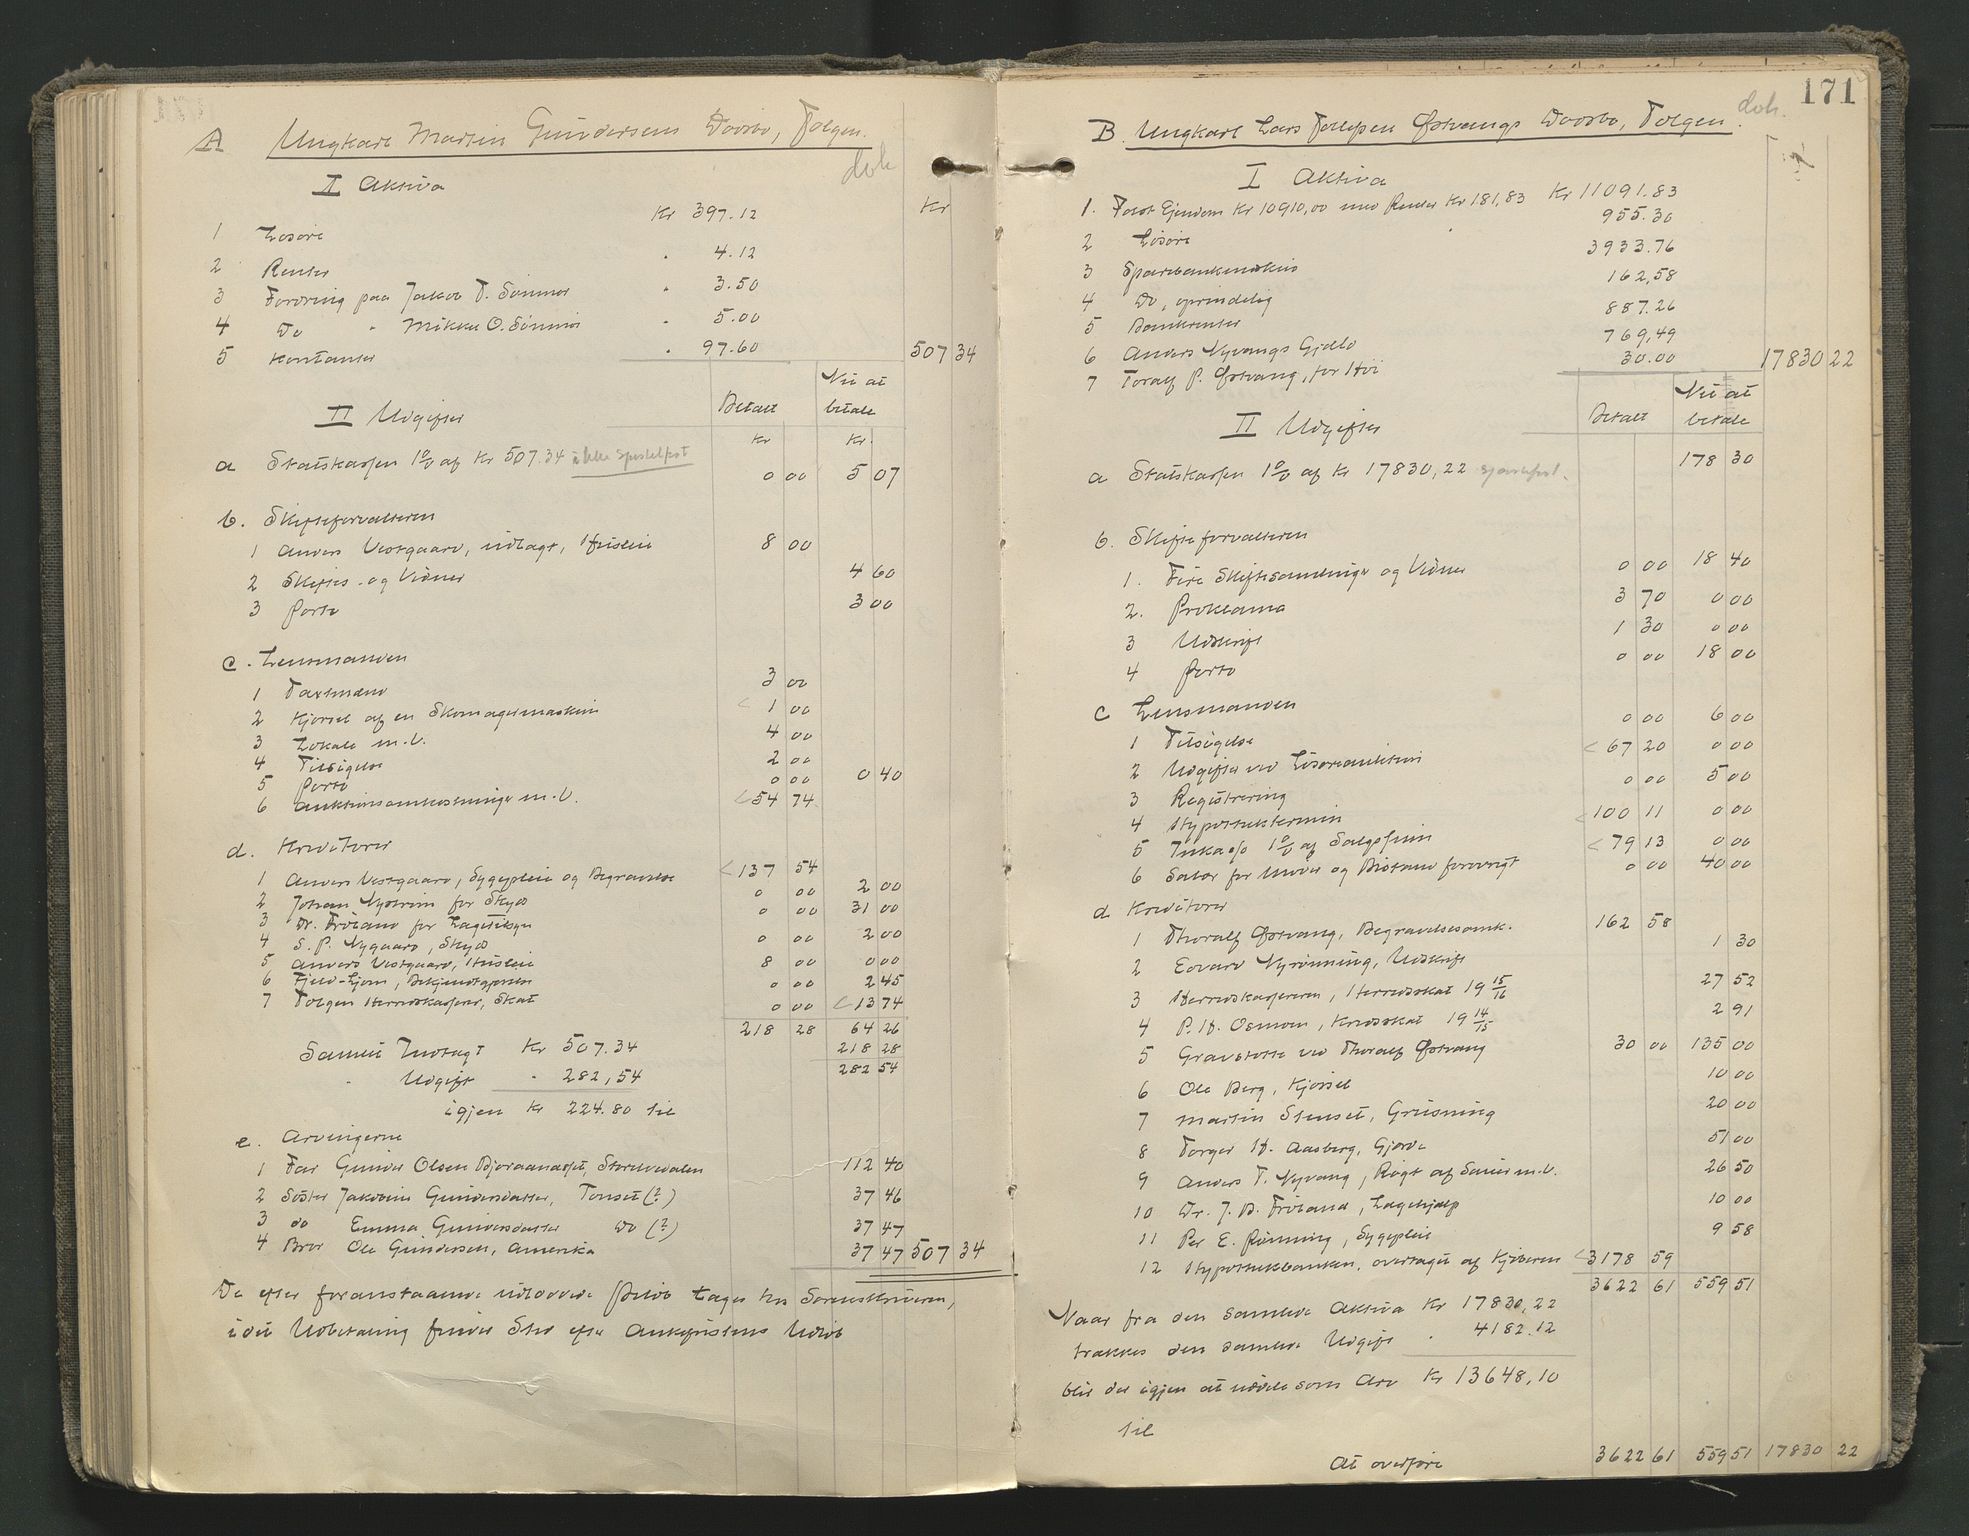 A Ungkarl Martin Gundersens Dødsbo, Tolgen.
doh
I Aktiva
Kr
1 Løsøre Kr 397.12
2 Renter " 4.12
3 Fordring paa Jakob T. Sømmør " 3.50
4 Do " Mikkel O. Sømmør " 5.00
5 Kontanter " 97.60 507 34
II Udgifter Betalt Nu at betale
Kr Kr.
a Statskassen 1% af Kr 507.34 ikke sportelfrit 0 00 5 07
b. Skifteforvalteren
1 Anders Vestgaard, udlagt, Husleie 8 00
2 Skiftes- og Vidner 4 60
3 Porto 3 00
c. Lensmanden
1 Taxtmænd 3 00
2 Kjørsel af en Skomagermaskin 1 00
3 Lokale m.v. 4 00
4 Tilsigelse 2 00
5 Porto 0 00 0 40
6 Auktionsomkostninger m.v. 54 74
d. Kreditorer
1 Anders Vestgaard, Sygepleie og Begravelse 137 54
2 Johan Nystrøm for Skyds 0 00 2 00
3 Dr. Frøland for Lægetilsyn 0 00 31 00
4 S. P. Nygaard, Skyds 0 00 2 00
5 Anders Vestgaard, Husleie 8 00 0 00
6 Fjeld-Ljom, Bekjendtgjørelse 0 00 2 45
7 Tolgen Herredskasserer, Skat 0 00 13 74
218 28 64 26
Samlet Indtægt Kr 507.34 218 28
" Udgift " 282,54 282 54
igjen Kr 224.80 til
e. Arvingerne
1 Far Gunder Olsen Bjøraanæsset, Storelvedalen 112 40
2 Søster Jakobine Gundersdatter, Tønset (?) 37 46
3 do Emma Gundersdatter Do (?) 37 47
4 Bror Ole Gundersen, Amerika 37 47 507 34
De efter foranstaaende udlodede Beløb tages hos Sorenskriveren,
idet Udbetaling finder Sted efter Ankefristens Udløb
171
doh.
B. Ungkarl Lars Tollefsen Østvangs Dødsbo, Tolgen.
I Aktiva
1. Fast Eiendom Kr 10910,00 med Renter Kr 181,83 Kr 11091.83
2 Løsøre 955.30
3 Sparebankindskud 3933.76
4 Do, oprindelig 162,58
5 Bankrenter 887.26
6 Anders Nyvangs Gjæld 769,49
7 Toralf P. Østvang, for Høi 30.00 17830 22
II Udgifter Betalt Nu at betale
a Statskassen 1% af Kr 17830,22 178 30
b. Skifteforvalteren
1. Fire Skiftesamlinger og Vidner 0 00 18 40
2. Proklama 3 70 0 00
3 Udskrift 1 30 0 00
4 Porto 0 00 18 00
c Lensmanden
1 Tilsigelse 0 00 6 00
2 Udgifter ved Løsøreauktion 67 20 0 00
3 Registrering 0 00 5 00
4 Hypotektermin 100 11 0 00
5 Inkasso 1% af Salgssum 79 13 0 00
6 Salær for Møder og Bistand forøvrigt 0 00 40 00
d Kreditorer
1 Thoralf Østvang, Begravelsesomk. 162 58
2 Edvard Nyrønning, Udskrift 1 30
3 Herredskassereren, Herredsskat 19 15/16 27 52
4 P. H. Osmoen, Kredsskat 19 14/15 2 91
5 Gravstøtte ved Thoralf Østvang 30 00 135 00
6 Ole Berg, Kjørsel 10 00
7 Martin Stenset, Grusning 20 00
8 Torger H. Aasberg, Gjærde 51 00
9 Anders T. Nyvang, Røgt af Sauer m.v. 26 50
10 Dr. J. B. Frøland, Lægehjælp 10 00
11 Per E. Rønning, Sygepleie 9 58
12 Hypotekbanken, overtaget af Kjøberen 3178 59
3622 61 559 51
Naar fra den samlede Aktiva Kr 17830,22
trækkes den samlede Udgift " 4182.12
blir der igjen at uddele som Arv Kr 13648,10
til
At overføre 3622 61 559 51 17830 22